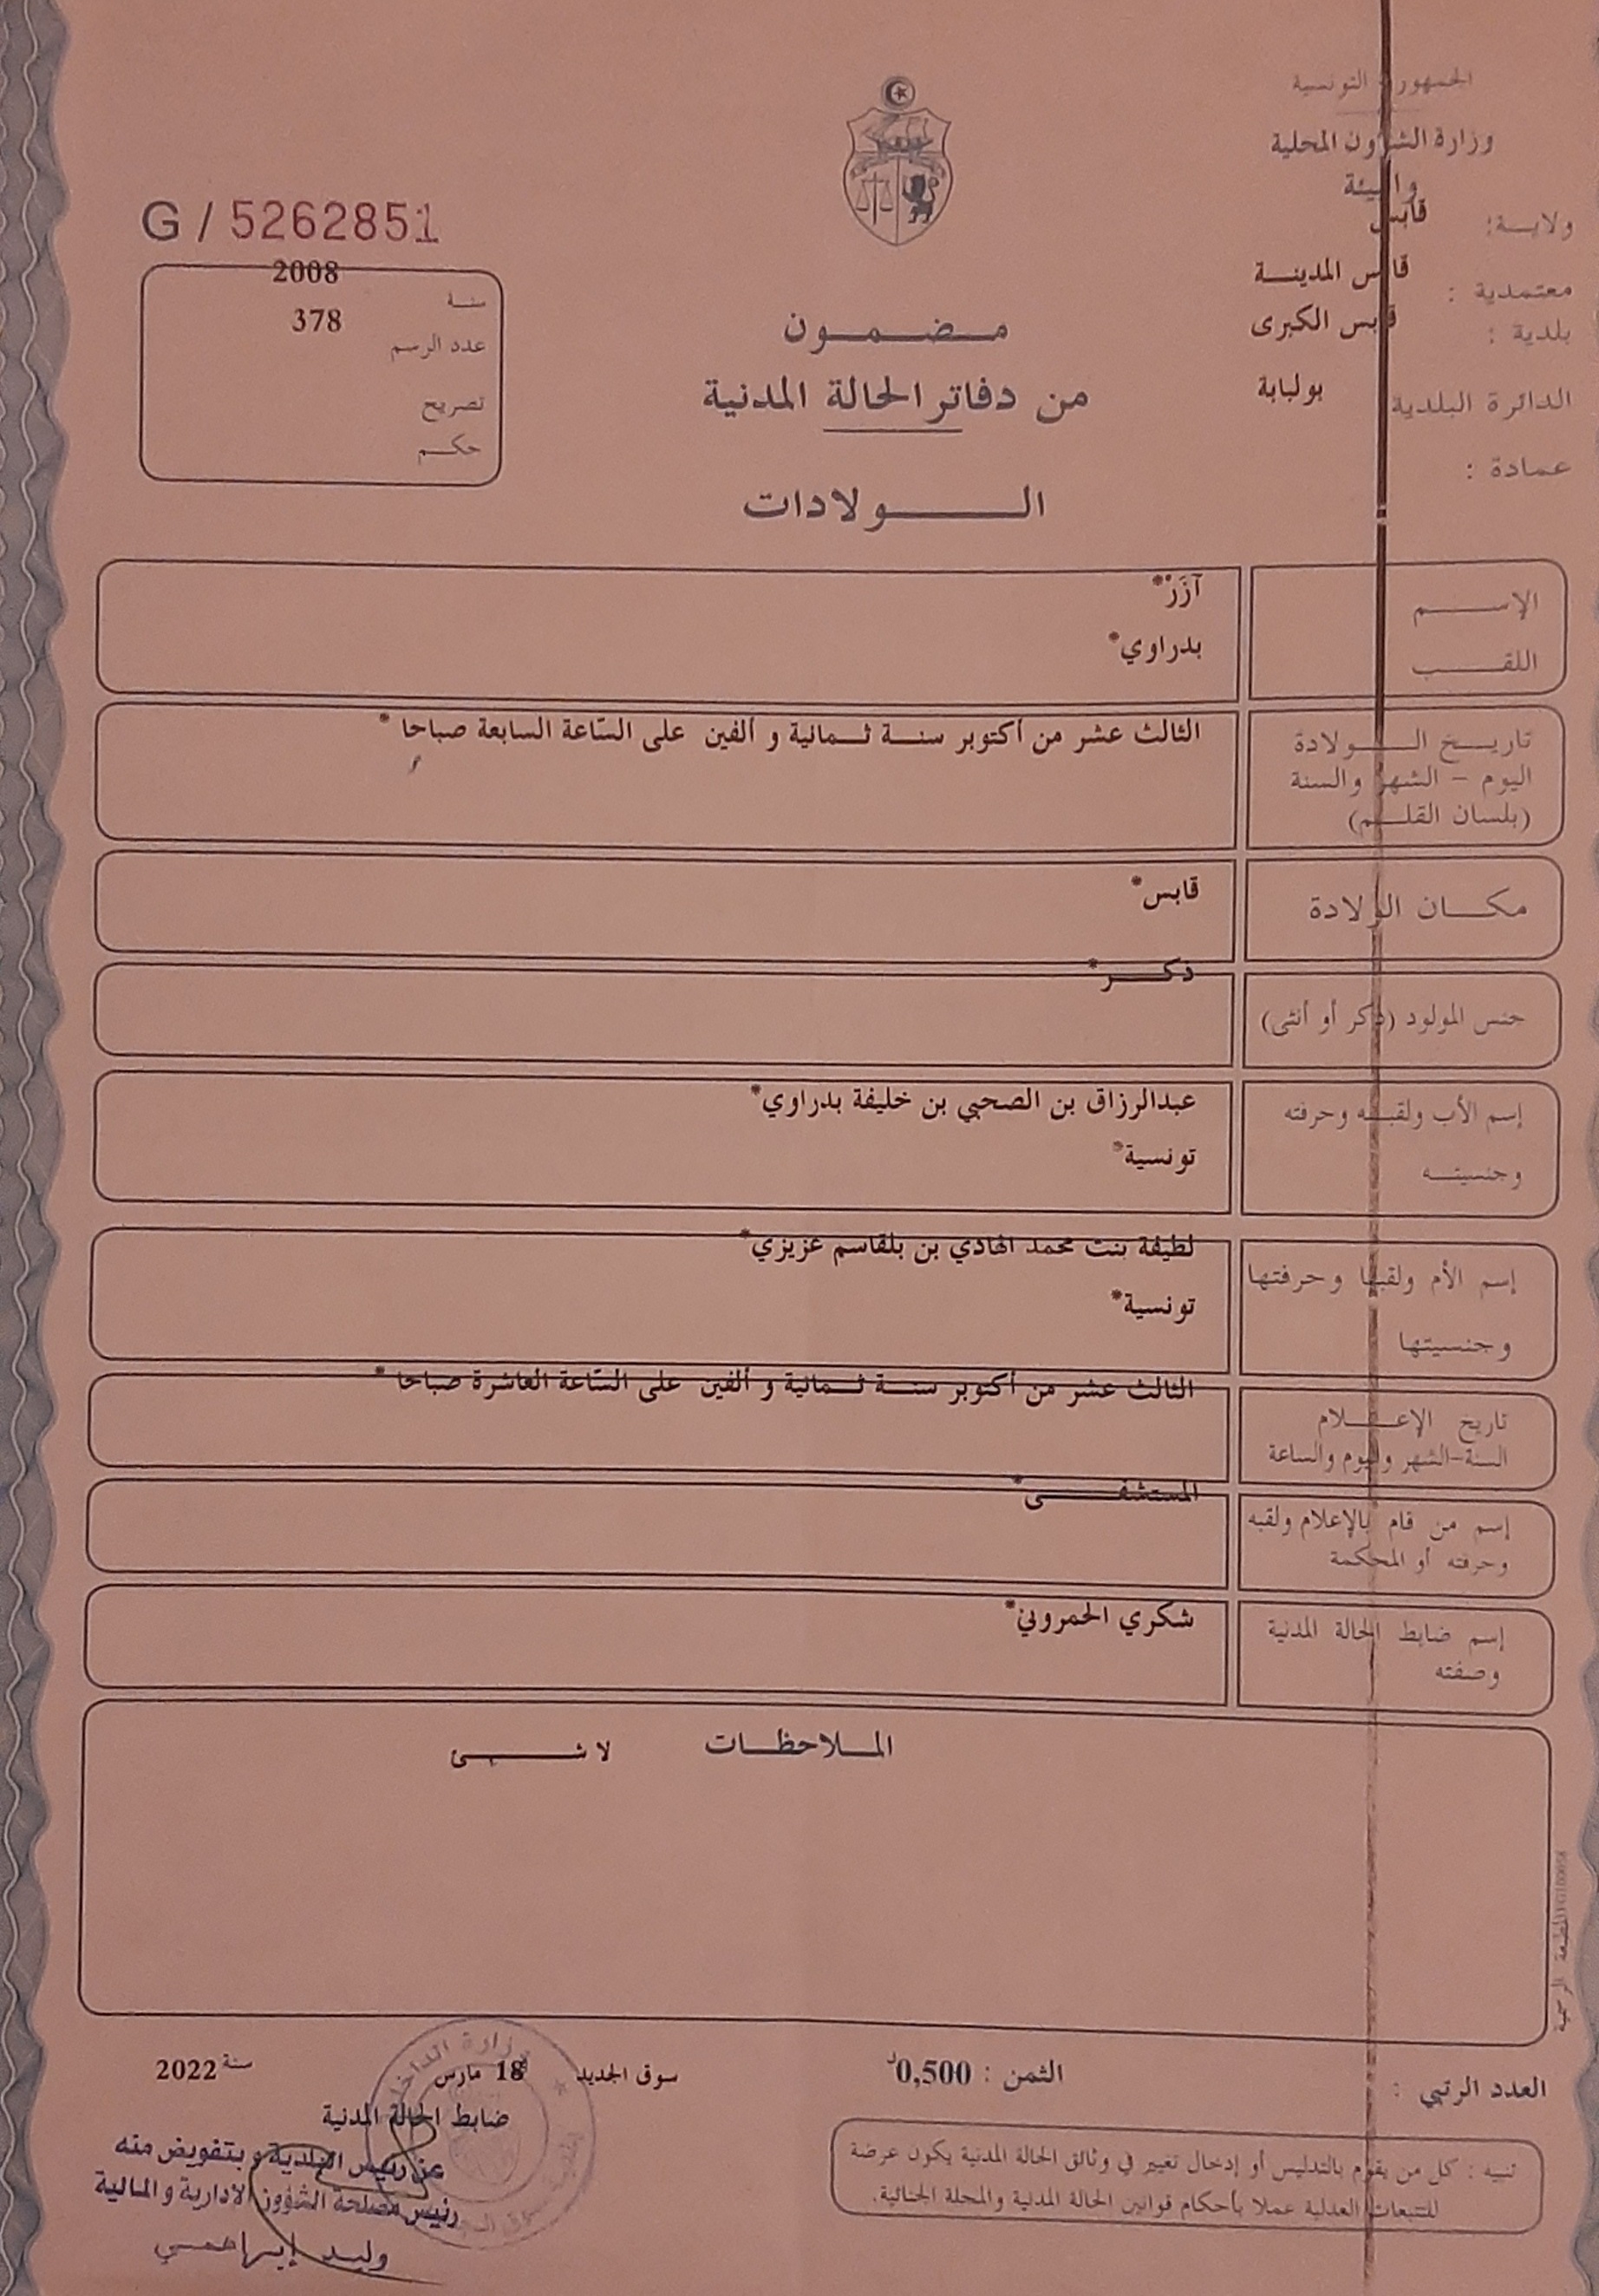 الجمهورية التونسية
وزارة الشؤون المحلية
والبيئة
ولاية: قابس
معتمدية : قابس المدينة
بلدية : قابس الكبرى
الدائرة البلدية بولبابة
عمادة :
G / 5262851
سنة 2008
عدد الرسم 378
تصريح
حكم
مضمون
من دفاتر الحالة المدنية
الولادات
الإسم آزَرْ*
اللقب بدراوي*
تاريخ الولادة
اليوم - الشهر والسنة
(بلسان القلم)
الثالث عشر من أكتوبر سنة ثمانية و ألفين على السّاعة السابعة صباحا *
مكان الولادة قابس*
جنس المولود (ذكر أو أنثى) ذكر*
إسم الأب ولقبه وحرفته عبدالرزاق بن الصحبي بن خليفة بدراوي*
وجنسيته تونسية*
إسم الأم ولقبها وحرفتها لطيفة بنت محمد الهادي بن بلقاسم عزيزي*
وجنسيتها تونسية*
تاريخ الإعلام
السنة-الشهر واليوم والساعة
الثالث عشر من أكتوبر سنة ثمانية و ألفين على السّاعة العاشرة صباحا *
إسم من قام بالإعلام ولقبه
وحرفته أو المحكمة
المستشفى*
إسم ضابط الحالة المدنية
وصفته
شكري الحمروني*
الملاحظات لا شيئ
المطبعة الرسمية
العدد الرتبي :
الثمن : 0,500د
سوق الجديد 18 مارس سنة 2022
ضابط الحالة المدنية
عن رئيس البلدية و بتفويض منه
رئيس مصلحة الشؤون الادارية و المالية
وليد إبراهمي
وزارة الداخلية
تنبيه : كل من يقوم بالتدليس أو إدخال تغيير في وثائق الحالة المدنية يكون عرضة
للتتبعات العدلية عملا بأحكام قوانين الحالة المدنية والمجلة الجنائية.